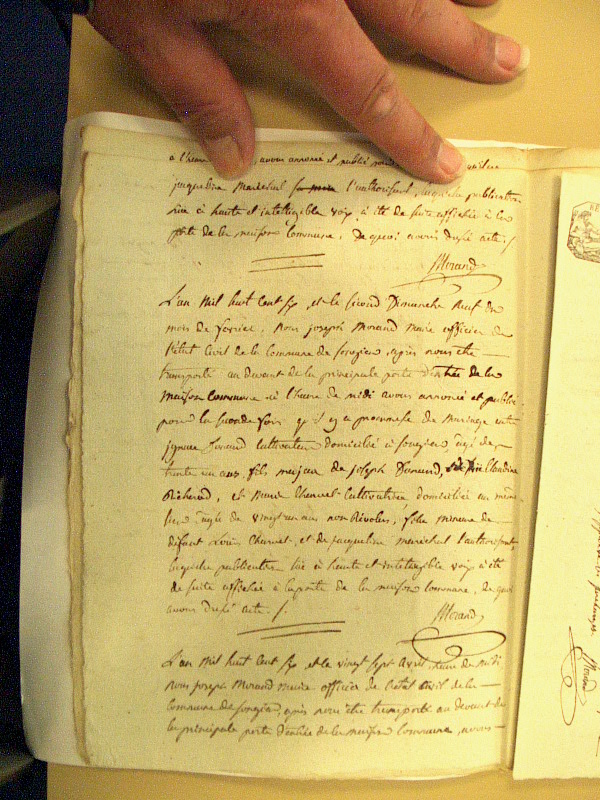 a l'heure avons annoncé et publié
jacqueline Marechal l'authorisant, laquelle publication
lue à haute et intelligible voix a été de suite affichée à la
porte de la maison Commune, De quoi avons dressé acte /
Morand
L'an Mil huit Cent six et le second Dimanche neuf du
mois de fevrier, Nous joseph Morand maire officier de
l'état Civil de la Commune de songieu, après nous être
transporté au devant de la principale porte d'entrée de la
maison commune à l'heure de midi avons annoncé et publié
pour la seconde fois qu'il y a promesse de Mariage entre
ignace cultivateur domicilié à songieu, agé de
trente un ans fils majeur de joseph et de Claudine
Richerod, et Charvet Cultivatrice domiciliée au même
lieu agée de vingt un ans non Révolus, fille mineure de
défunt Charvet, et de jacqueline maréchal l'authorisant,
laquelle publication lue à haute et intelligible voix a été
de suite affichée à la porte de la maison Commune, de quoi
avons dressé acte /
Morand
L'an Mil huit Cent six et le vingt sept Avril, heure de midi,
Nous joseph Morand maire officier de l'état Civil de la
commune de songieu, après nous être transporté au devant de
la principale porte d'entrée de la maison Commune, avons
Morand